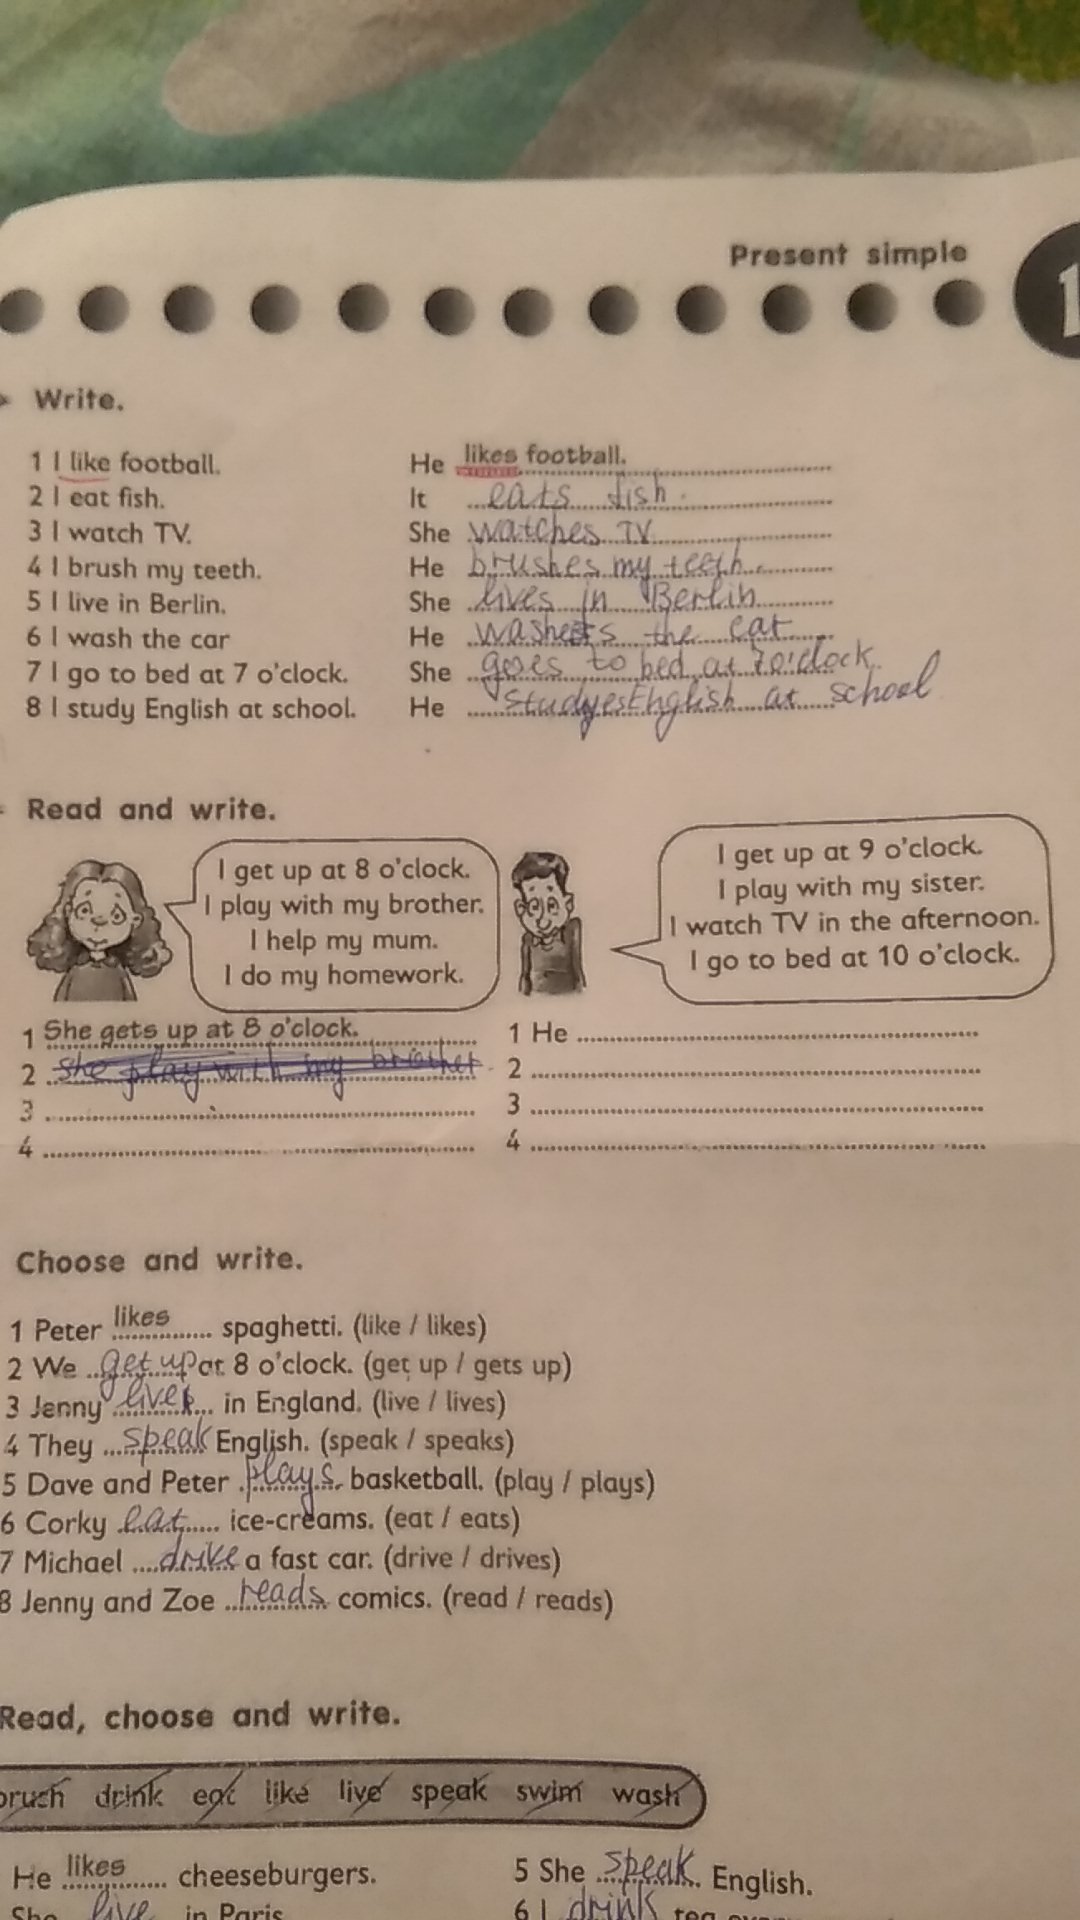 Present simple
1
Write.
1 I like football. He likes football.
2 I eat fish. It eats fish.
3 I watch TV. She watches TV
4 I brush my teeth. He brushes my teeth.
5 I live in Berlin. She lives in Berlin
6 I wash the car He washes the car
7 I go to bed at 7 o'clock. She goes to bed at 7 o'clock.
8 I study English at school. He studyes English at school
Read and write.
I get up at 8 o'clock.
I play with my brother.
I help my mum.
I do my homework.
I get up at 9 o'clock.
I play with my sister.
I watch TV in the afternoon.
I go to bed at 10 o'clock.
1 She gets up at 8 o'clock. 1 He
2 she play with my brother 2
3 3
4 4
Choose and write.
1 Peter likes spaghetti. (like / likes)
2 We get up at 8 o'clock. (get up / gets up)
3 Jenny lives in England. (live / lives)
4 They speak English. (speak / speaks)
5 Dave and Peter plays basketball. (play / plays)
6 Corky eat ice-creams. (eat / eats)
7 Michael drive a fast car. (drive / drives)
8 Jenny and Zoe reads comics. (read / reads)
Read, choose and write.
drink eat like live speak swim wash
He likes cheeseburgers. 5 She speak English.
She live in Paris 6 I drink tea